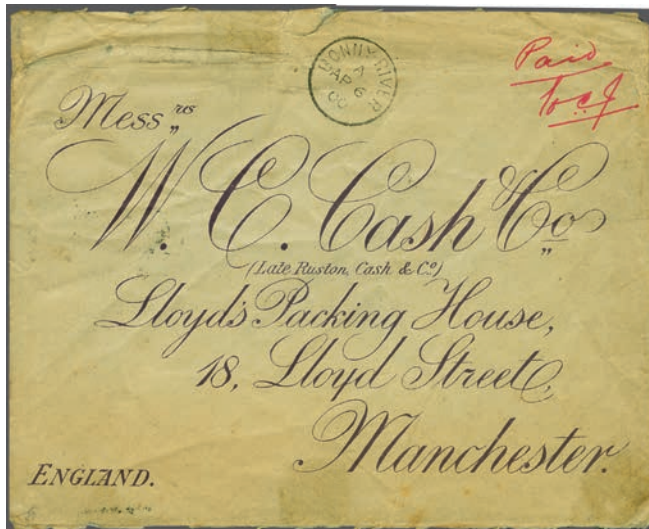 BONNY RIVER
A
AP 6
00
Paid
Mess.rs
W. C. Cash & Co.
(Late Ruston, Cash & Co.)
Lloyd's Packing House,
18, Lloyd Street,
Manchester.
ENGLAND.